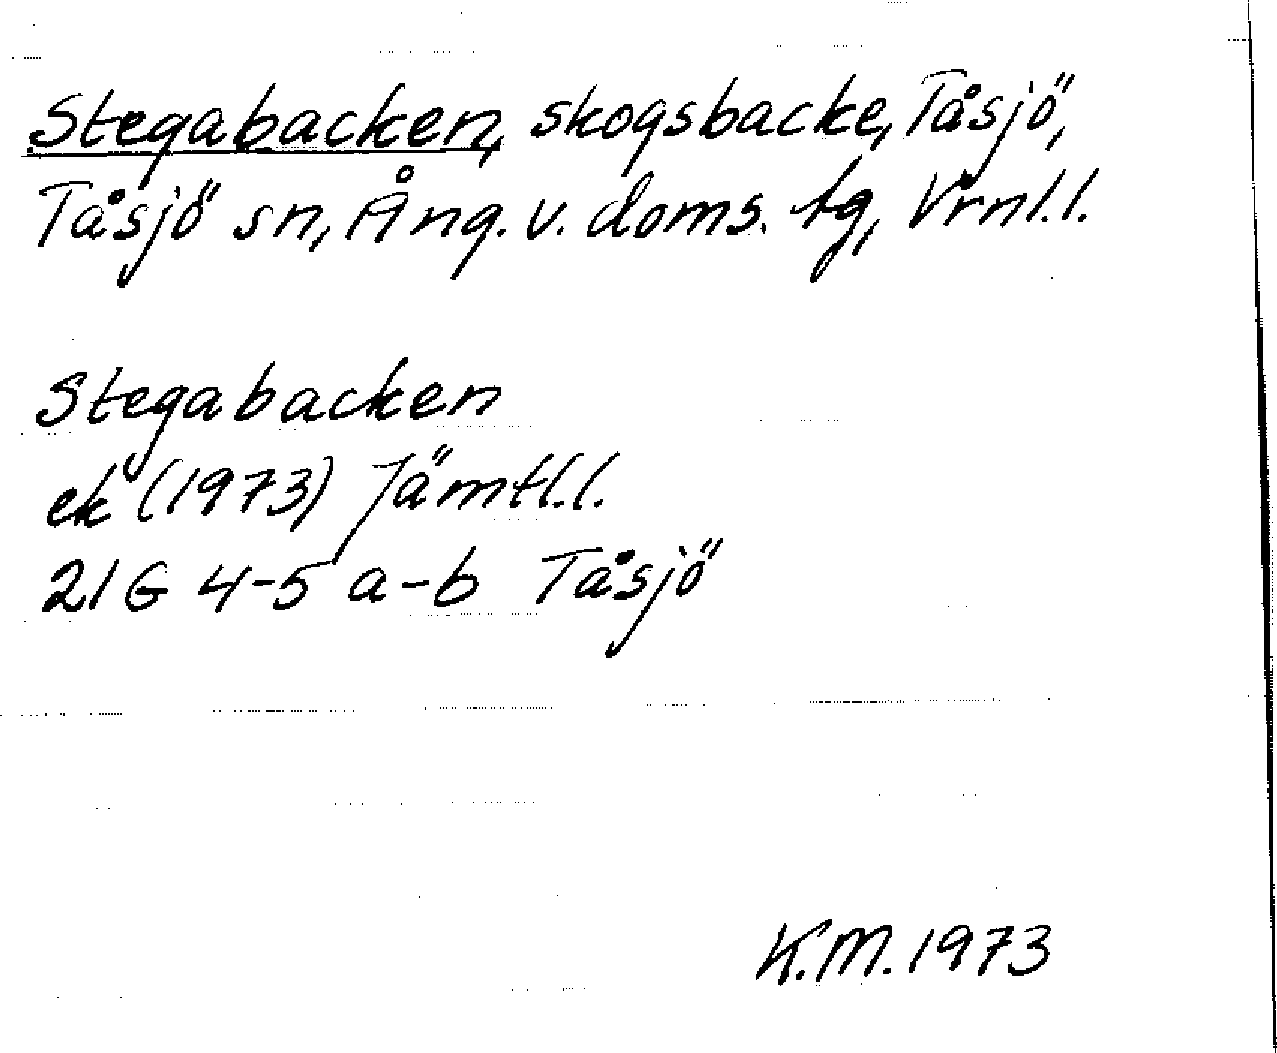 Stegabacken, skogsbacke, Tåsjö,
Tåsjö sn, Ång. v. doms. tg, Vrnl.l.
Stegabacken
ek (1973) Jämtl.l.
21G 4-5 a-b Tåsjö
K.M. 1973